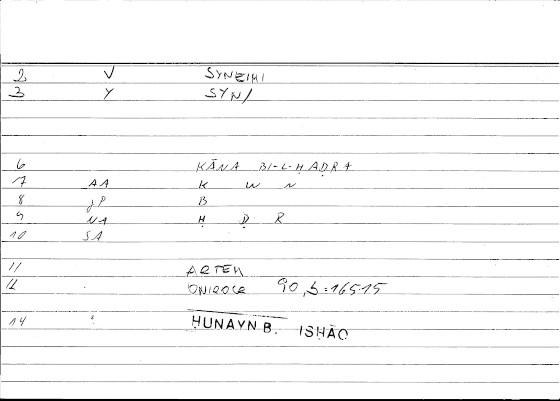 2 V SYNEIMI
3 Y SYN/
6 KĀNA BI-L-ḤAḌRA
7 AA K W N
8 JP B
9 NA Ḥ Ḍ R
10 SA
11 ARTEM
12 ONIROCR 90,5:165,15
14 ḤUNAYN B. ISḤĀQ